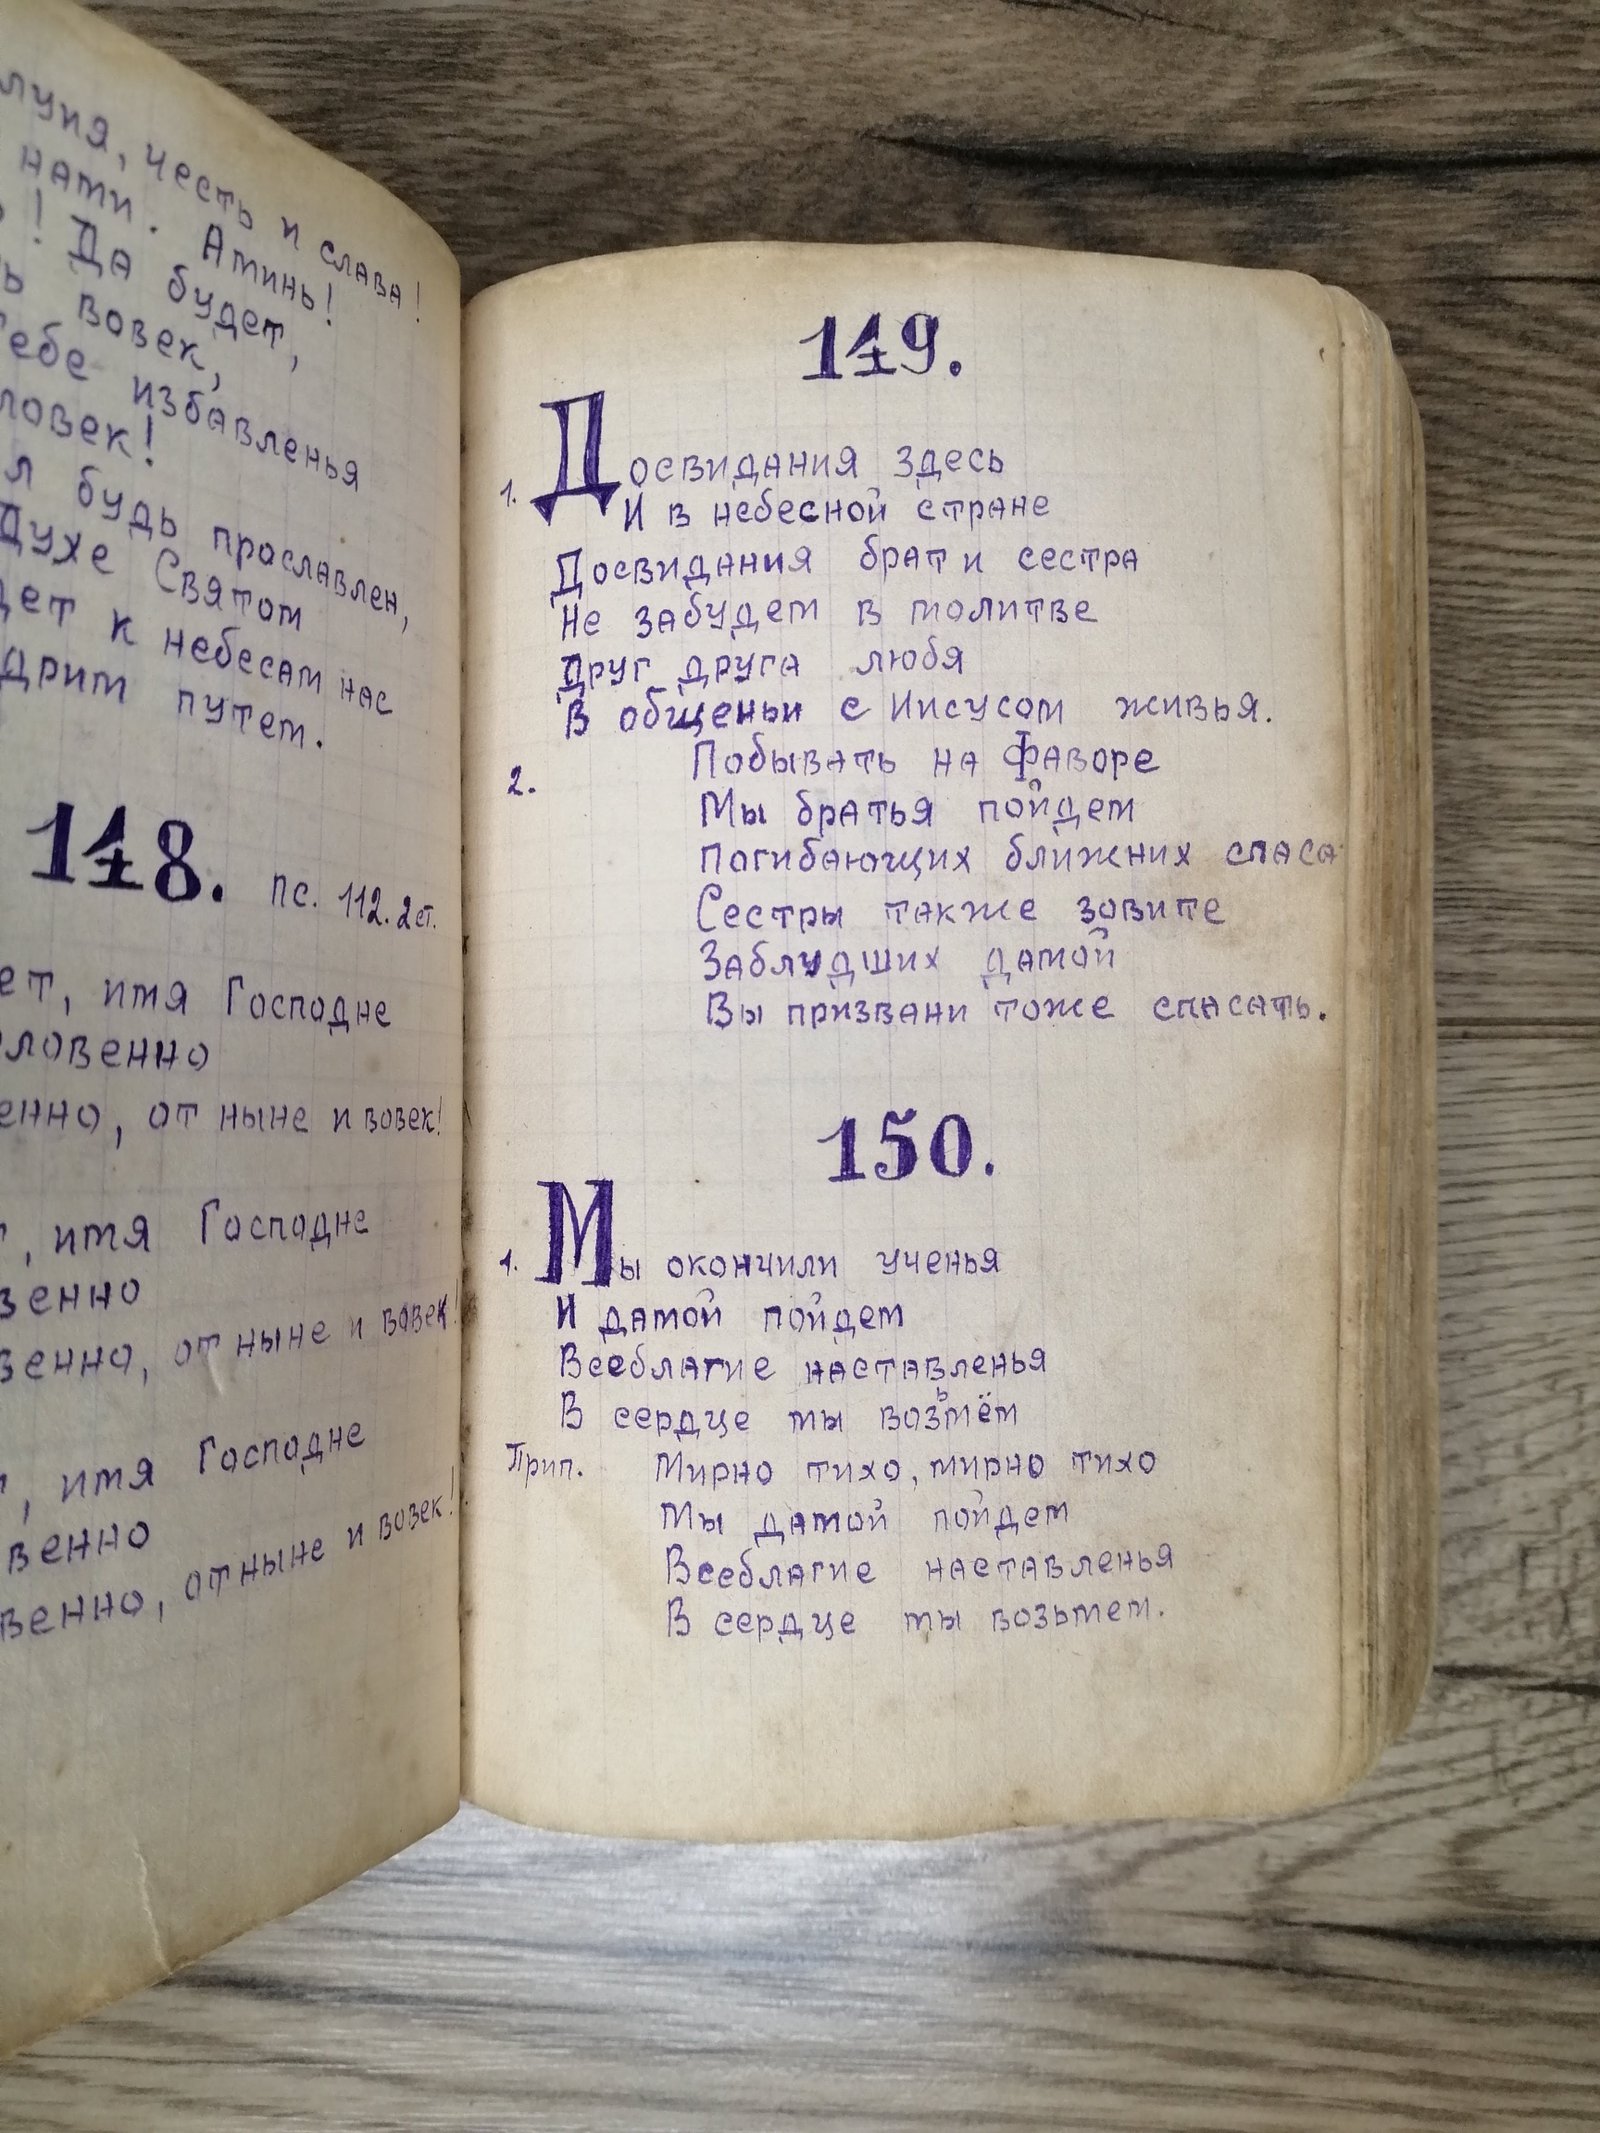 луия, честь и слава!
нами. Аминь!
! Да будет,
вовек,
Тебе избавленья
ловек!
л будь прославлен,
Духе Святом
дет к небесам нас
дрим путем.
148. пс. 112. 2 ст.
ет, имя Господне
ловенно
енно, от ныне и вовек!
т, имя Господне
венно
венно, от ныне и вовек!
т, имя Господне
венно
венно, от ныне и вовек!
149.
1. Досвидания здесь
И в небесной стране
Досвидания брат и сестра
Не забудем в молитве
Друг друга любя
В общеньи с Иисусом живья.
2. Побывать на Фаворе
Мы братья пойдем
Погибающих ближних спаса
Сестры также зовите
Заблудших дамой
Вы призвани тоже спасать.
150.
1. Мы окончили ученья
И дамой пойдем
Всеблагие наставленья
В сердце мы возьмём
Прип. Мирно тихо, мирно тихо
Мы дамой пойдем
Всеблагие наставленья
В сердце мы возьмем.